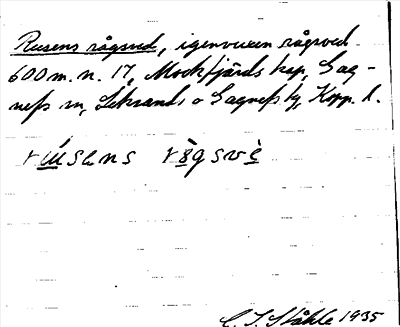 Rusens rågsved, igenvuxen rågsved
600 m. n. 17, Mockfjärds kap, Gag-
nefs sn, Leksands o Gagnefs tg, Kopp. l.
rusens rågsve
C. I. Ståhle 1935